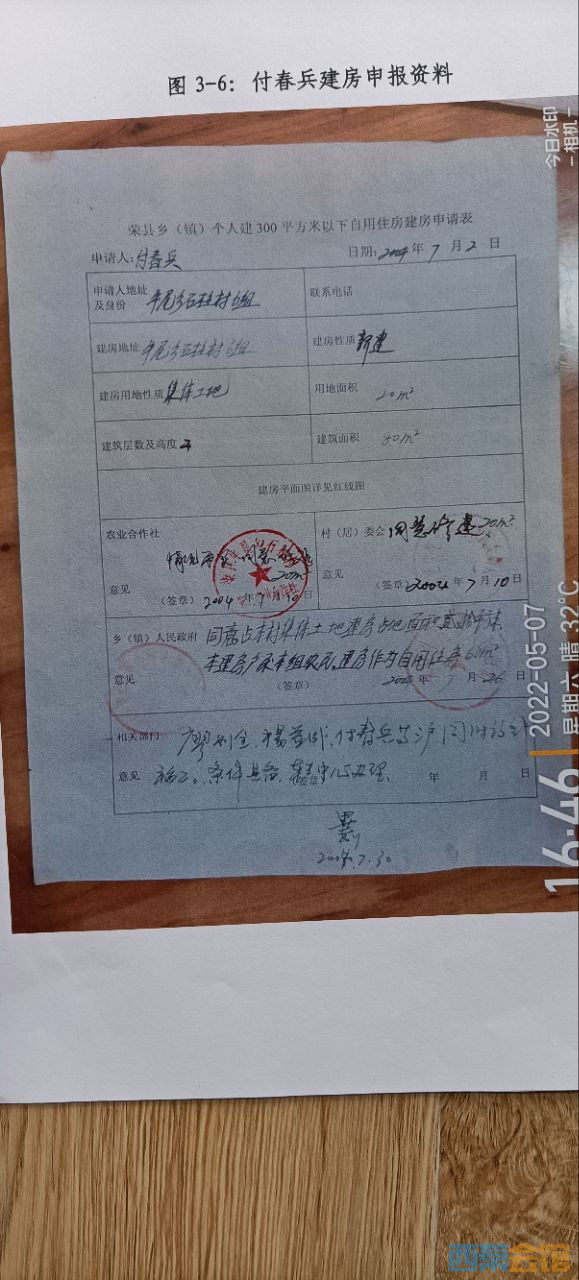 图 3-6：付春兵建房申报资料
今日水印
-相机-
荣县乡（镇）个人建300平方米以下自用住房建房申请表
申请人:付春兵 日期:2004年7月2日
申请人地址及身份 牟尾乡石柱村6组 联系电话
建房地址 牟尾乡石柱村6组 建房性质 新建
建房用地性质 集体土地 用地面积 20m²
建筑层数及高度 建筑面积 80m²
建房平面图详见红线图
农业合作社 村（居）委会 同意修建20m²
情况 同意 20m²
意见 意见
（签章）2004年7月10日 （签章）2004年7月10日
乡（镇）人民政府 同意占本村集体土地建房占地面积贰拾平方米
本建房户系本组农民,建房作为自用住房
意见 （签章） 7月26日
相关部门 付春兵
意见 条件具备 办理 年 月 日
2004.7.30
16:46
2022-05-07
星期六 晴 32℃
西秦会馆